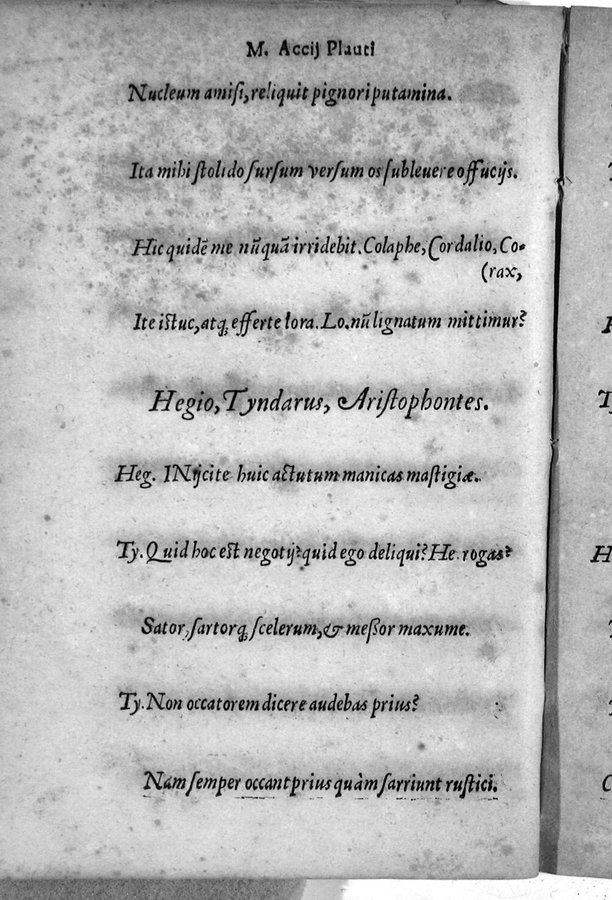 M. Accij Plauti
Nucleum amiſi, reliquit pignori putamina.
Ita mihi ſtolido ſurſum verſum os ſubleuere offucijs.
Hic quidē me nūquā irridebit. Colaphe, Cordalio, Co-
(rax,
Ite iſtuc, atq; efferte lora. Lo. nū lignatum mittimur?
Hegio, Tyndarus, Ariſtophontes.
Heg. INijcite huic actutum manicas maſtigiæ.
Ty. Quid hoc eſt negotij? quid ego deliqui? He. rogas?
Sator, ſartorq; ſcelerum, & meſſor maxume.
Ty. Non occatorem dicere audebas prius?
Nam ſemper occant prius quàm ſarriunt ruſtici.